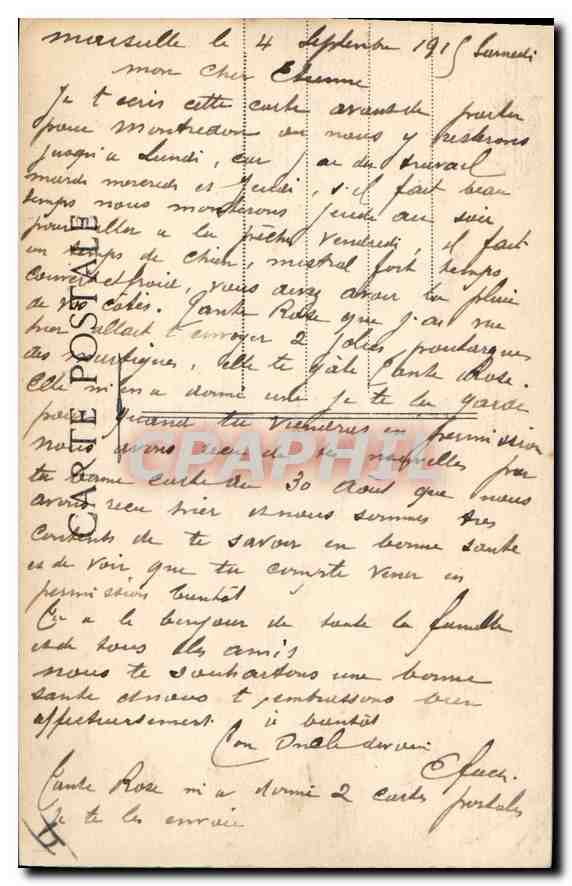 marseille le 4 Septembre 1915 Samedi
mon cher Etienne
Je t ecris cette carte avant de partir
pour Montredon ou nous y resterons
jusqu'a Lundi, car j'ai du travail
mardi mercredi et Jeudi, s'il fait beau
temps nous monterons jeudi au soir
pour aller a la pêche Vendredi, il fait
un temps de chien, mistral fort temps
couvert et froid, vous avez avoir la pluie
de vos côtés. Tante Rose que j'ai vue
hier allait t envoyer 2 jolies poutargues
des martigues, elle te gâte Tante Rose.
Elle m'en a donné une je te la garde
pour quand tu viendras en permission
nous avons de tes nouvelles par
ta bonne carte du 30 Aout que nous
avons recu hier et nous sommes tres
contents de te savoir en bonne sante
et de voir que tu compte venir en
permission bientôt
Tu a le bonjour de toute la famille
et de tous les amis
nous te souhaitons une bonne
sante et nous t'embrassons bien
affectueusement à bientôt
Ton Oncle
Tante Rose m'a donné 2 cartes postales
Je te les envoie
CARTE POSTALE
CPAPHIL